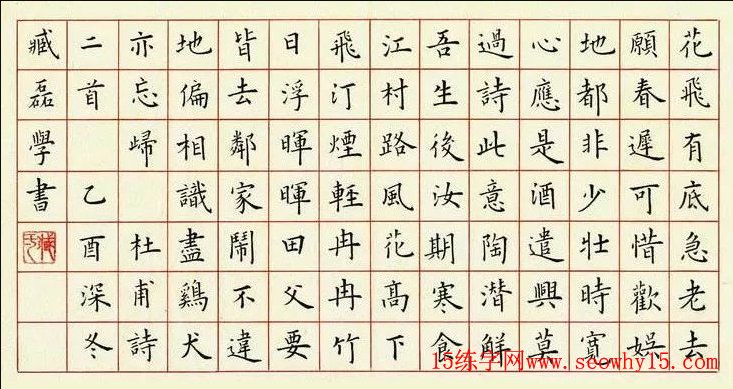 花飛有底急老去
願春遲可惜歡娛
地都非少壯時寬
心應是酒遣興莫
過詩此意陶潛觧
吾生後汝期寒食
江村路風花髙下
飛汀煙輕冉冉竹
日浮暉暉田父要
皆去鄰家鬧不違
地偏相識盡鷄犬
亦忘歸 杜甫詩
二首 乙酉深冬
臧磊學書
15练字网www.seowhy15.com